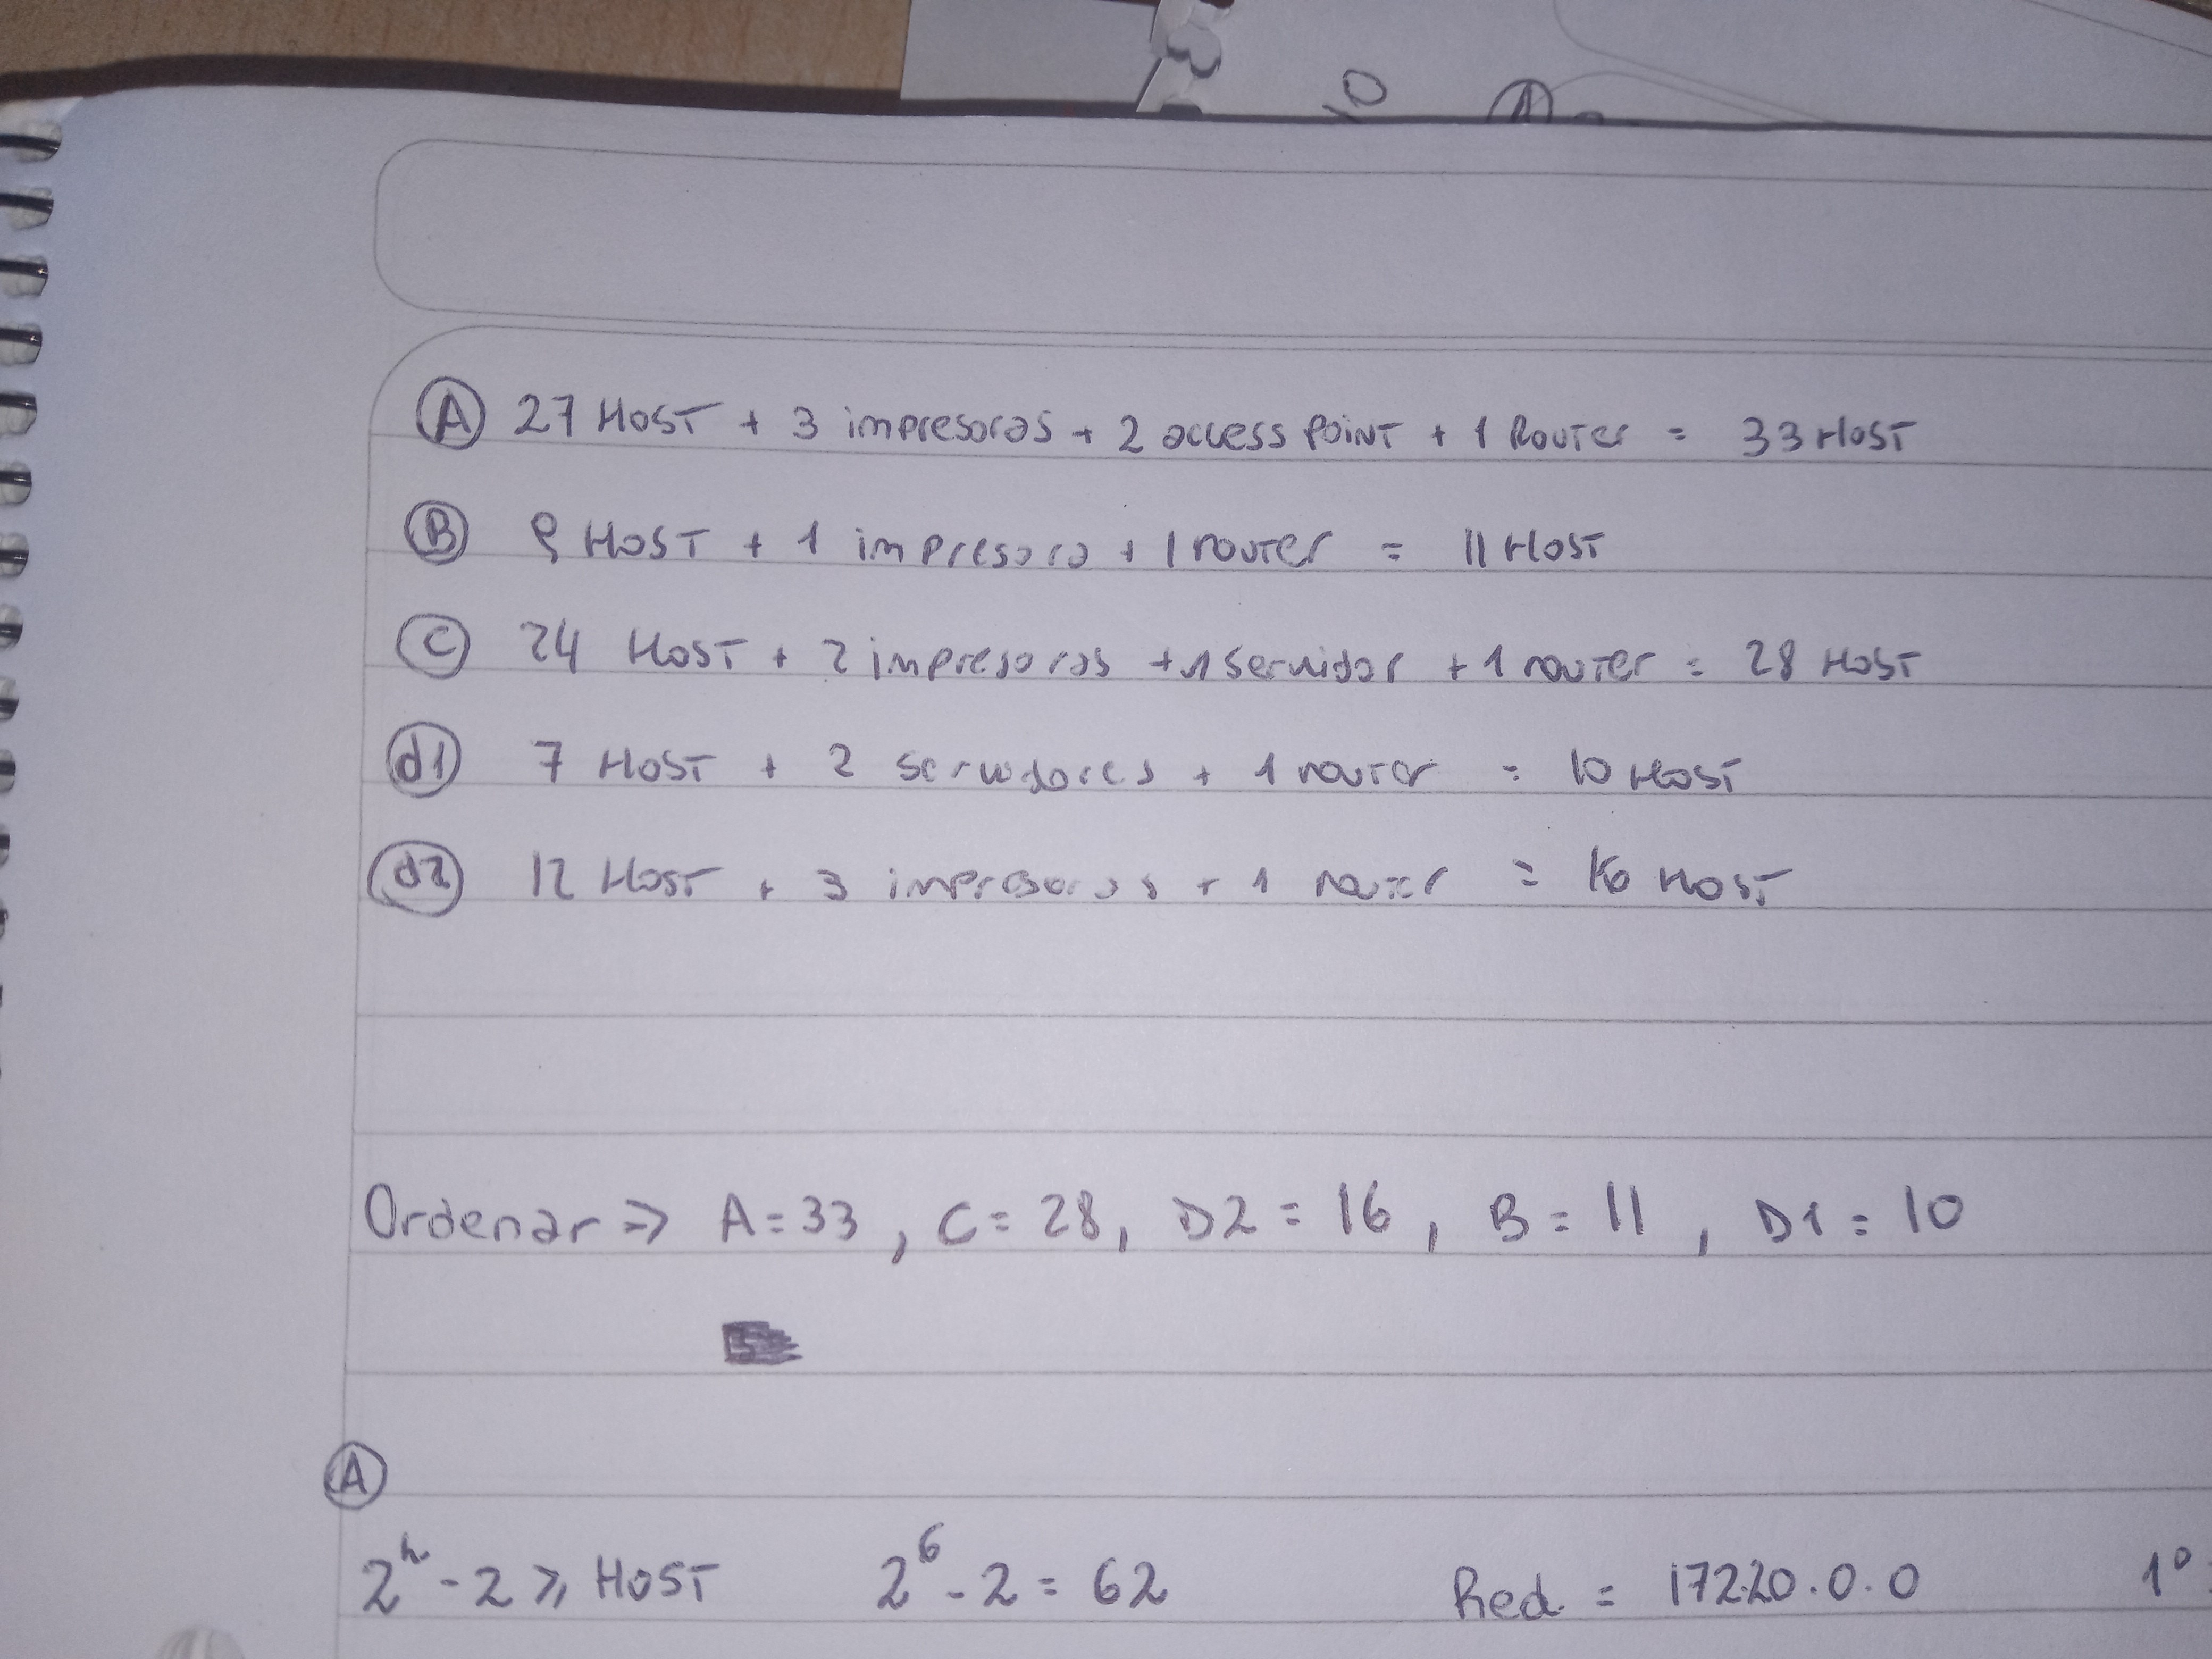 10 A
A 27 HOST + 3 impresoras + 2 access POINT + 1 Router = 33 HOST
B 9 HOST + 1 impresora + 1 router = 11 HOST
C 24 HOST + 2 impresoras + 1 servidor + 1 router = 28 HOST
d1 7 HOST + 2 servidores + 1 router = 10 HOST
d2 12 HOST + 3 impresoras + 1 router = 16 HOST
Ordenar => A = 33 , C = 28 , D2 = 16 , B = 11 , D1 = 10
A
2ⁿ - 2 ⩾ HOST 2⁶ - 2 = 62 Red = 172.20.0.0 1º